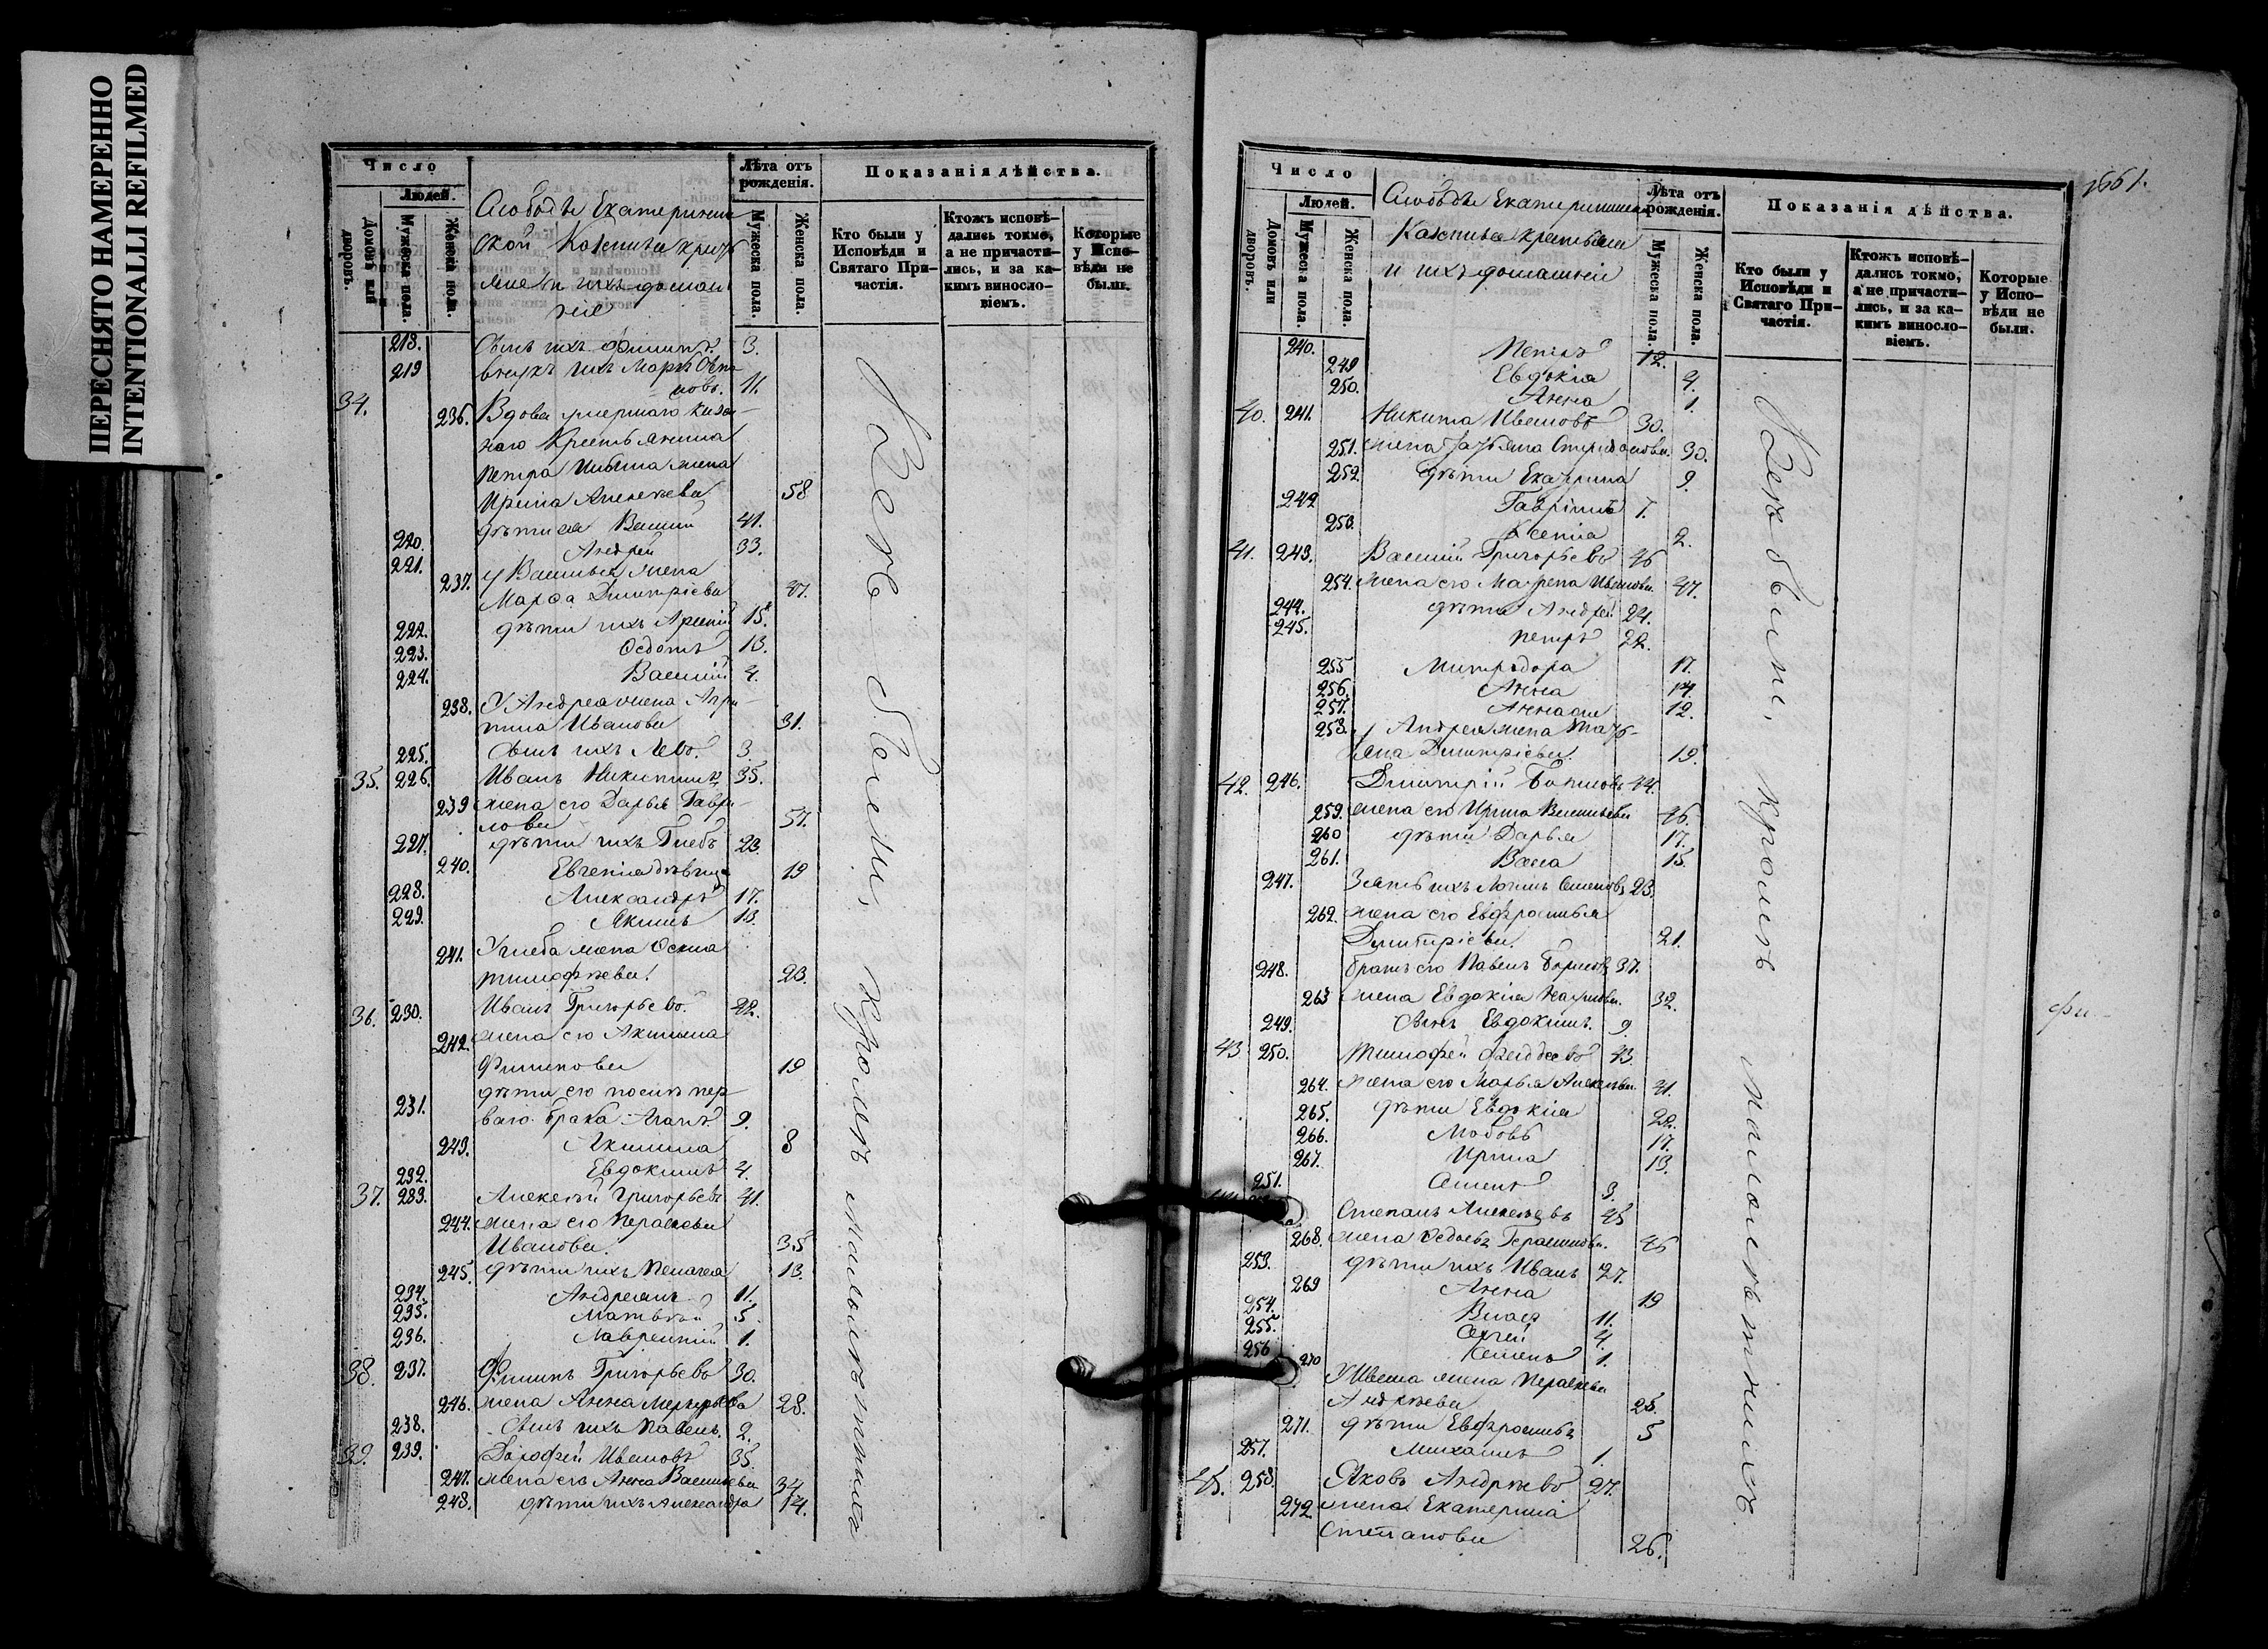 ПЕРЕСНЯТО НАМЕРЕННО
INTENTIONALLI REFILMED
Число
Людей.
Домовъ или дворовъ.
Мужеска пола.
Женска пола.
Лѣта отъ рожденія.
Мужеска пола.
Женска пола.
Показанія дѣйства.
Кто были у Исповѣди и Святаго Причастія.
Ктожъ исповѣдались токмо, а не причастились, и за каким винословіемъ.
Которые у Исповѣди не были.
Слободы Екатеринин
ской
218. Сынъ ихъ Филиппъ. 3.
219 внукъ ихъ Маркъ
новъ. 11.
34. 236. Вдова умершаго казен-
наго Крестьянина
Петра жена
Ирина Алексѣева 58
220. дѣти ея Василій 41.
221. Андрей 33.
237. у Василья жена
Марѳа Димитріева 41.
222. дѣти ихъ Арсеній 15.
223. Ѳедотъ 13.
224. Василій 4.
238. У Андрея жена Агри-
пина Иванова 31.
225. Сынъ ихъ Левъ. 3.
35. 226. Иванъ Никитинъ 35.
239 жена его Дарья Гаври-
лова 57.
227. дѣти ихъ Глебъ 23.
240. Евгенія дѣвица 19
228. Александръ 17.
229. Якимъ 13.
241. У Глеба жена
Тимофѣева 23.
36. 230. Иванъ Григорьевъ. 22.
242. жена его Акилина
Филипова 19
дѣти его послѣ пер-
231. ваго брака Агапъ 9.
243. Акилина 8
232. Евдокимъ 4.
37. 233. Алексѣй Григорьевъ 41.
244. жена его Параскева
Иванова. 35
245. дѣти ихъ Пелагея 13.
234. Андреянъ 11.
235. Матвѣй 5.
236. Лаврентій 1.
38. 237. Филипъ Григорьевъ 30.
246. жена Анна 28.
238. Сынъ ихъ Павелъ. 2.
39. 239. Дорофей Ивановъ 35.
247. жена его Анна Васильева 34
248. дѣти ихъ Александра 14.
Всѣ были, кромѣ малолѣтнихъ
1661.
Число
Людей.
Домовъ или дворовъ.
Мужеска пола.
Женска пола.
Лѣта отъ рожденія.
Мужеска пола.
Женска пола.
Показанія дѣйства.
Кто были у Исповѣди и Святаго Причастія.
Ктожъ исповѣдались токмо, а не причастились, и за каким винословіемъ.
Которые у Исповѣди не были.
Слободы
и ихъ домашніи
240. 12.
249 Евдокія 4.
250. Анна 1.
40. 241. Никита Ивановъ 30.
251. жена Татьяна 30.
252. дѣти Екатрина 9.
242 Гавріилъ 7.
Ксенія 2.
41. 243. Василій Григорьевъ 46
254. жена его Матрена Иванова 47.
244. дѣти Андрей 24.
245. Петръ 22.
255 Митродора 17.
256. Анна 14.
257. 12.
258. у Андрея жена Тать-
яна Димитріева. 19.
42. 246. Димитрій Борисовъ 44.
259. жена его Ирина Васильева 46.
260 дѣти Дарья 17.
261. Васса 15.
247. Зять ихъ Семеновъ 23.
262. жена его Евфросинья
Димитріева. 21.
248. братъ его Павелъ Борисовъ 37.
263 жена Евдокія 32.
249. Сынъ Евдокимъ. 9
43 250. Тимофей 43.
264. жена его Марья Алексѣева 41.
265. дѣти Евдокія 22.
266. Любовь 17.
267. Ирина 13.
251. Семенъ 3.
Степанъ Алексѣевъ 45
268. жена Герасимова. 46
253. дѣти ихъ Иванъ 27.
269 Анна 19
254. Власъ 11.
255. Сергей 4.
256 Семенъ 1.
270 У Ивана жена Параскева
Андрѣева 25.
271. дѣти Евфросинья 5
257. Михаилъ 1.
45. 258. Яковъ Андрѣевъ 27.
272. жена Екатерина
Степанова 26.
Всѣ были, кромѣ малолѣтнихъ